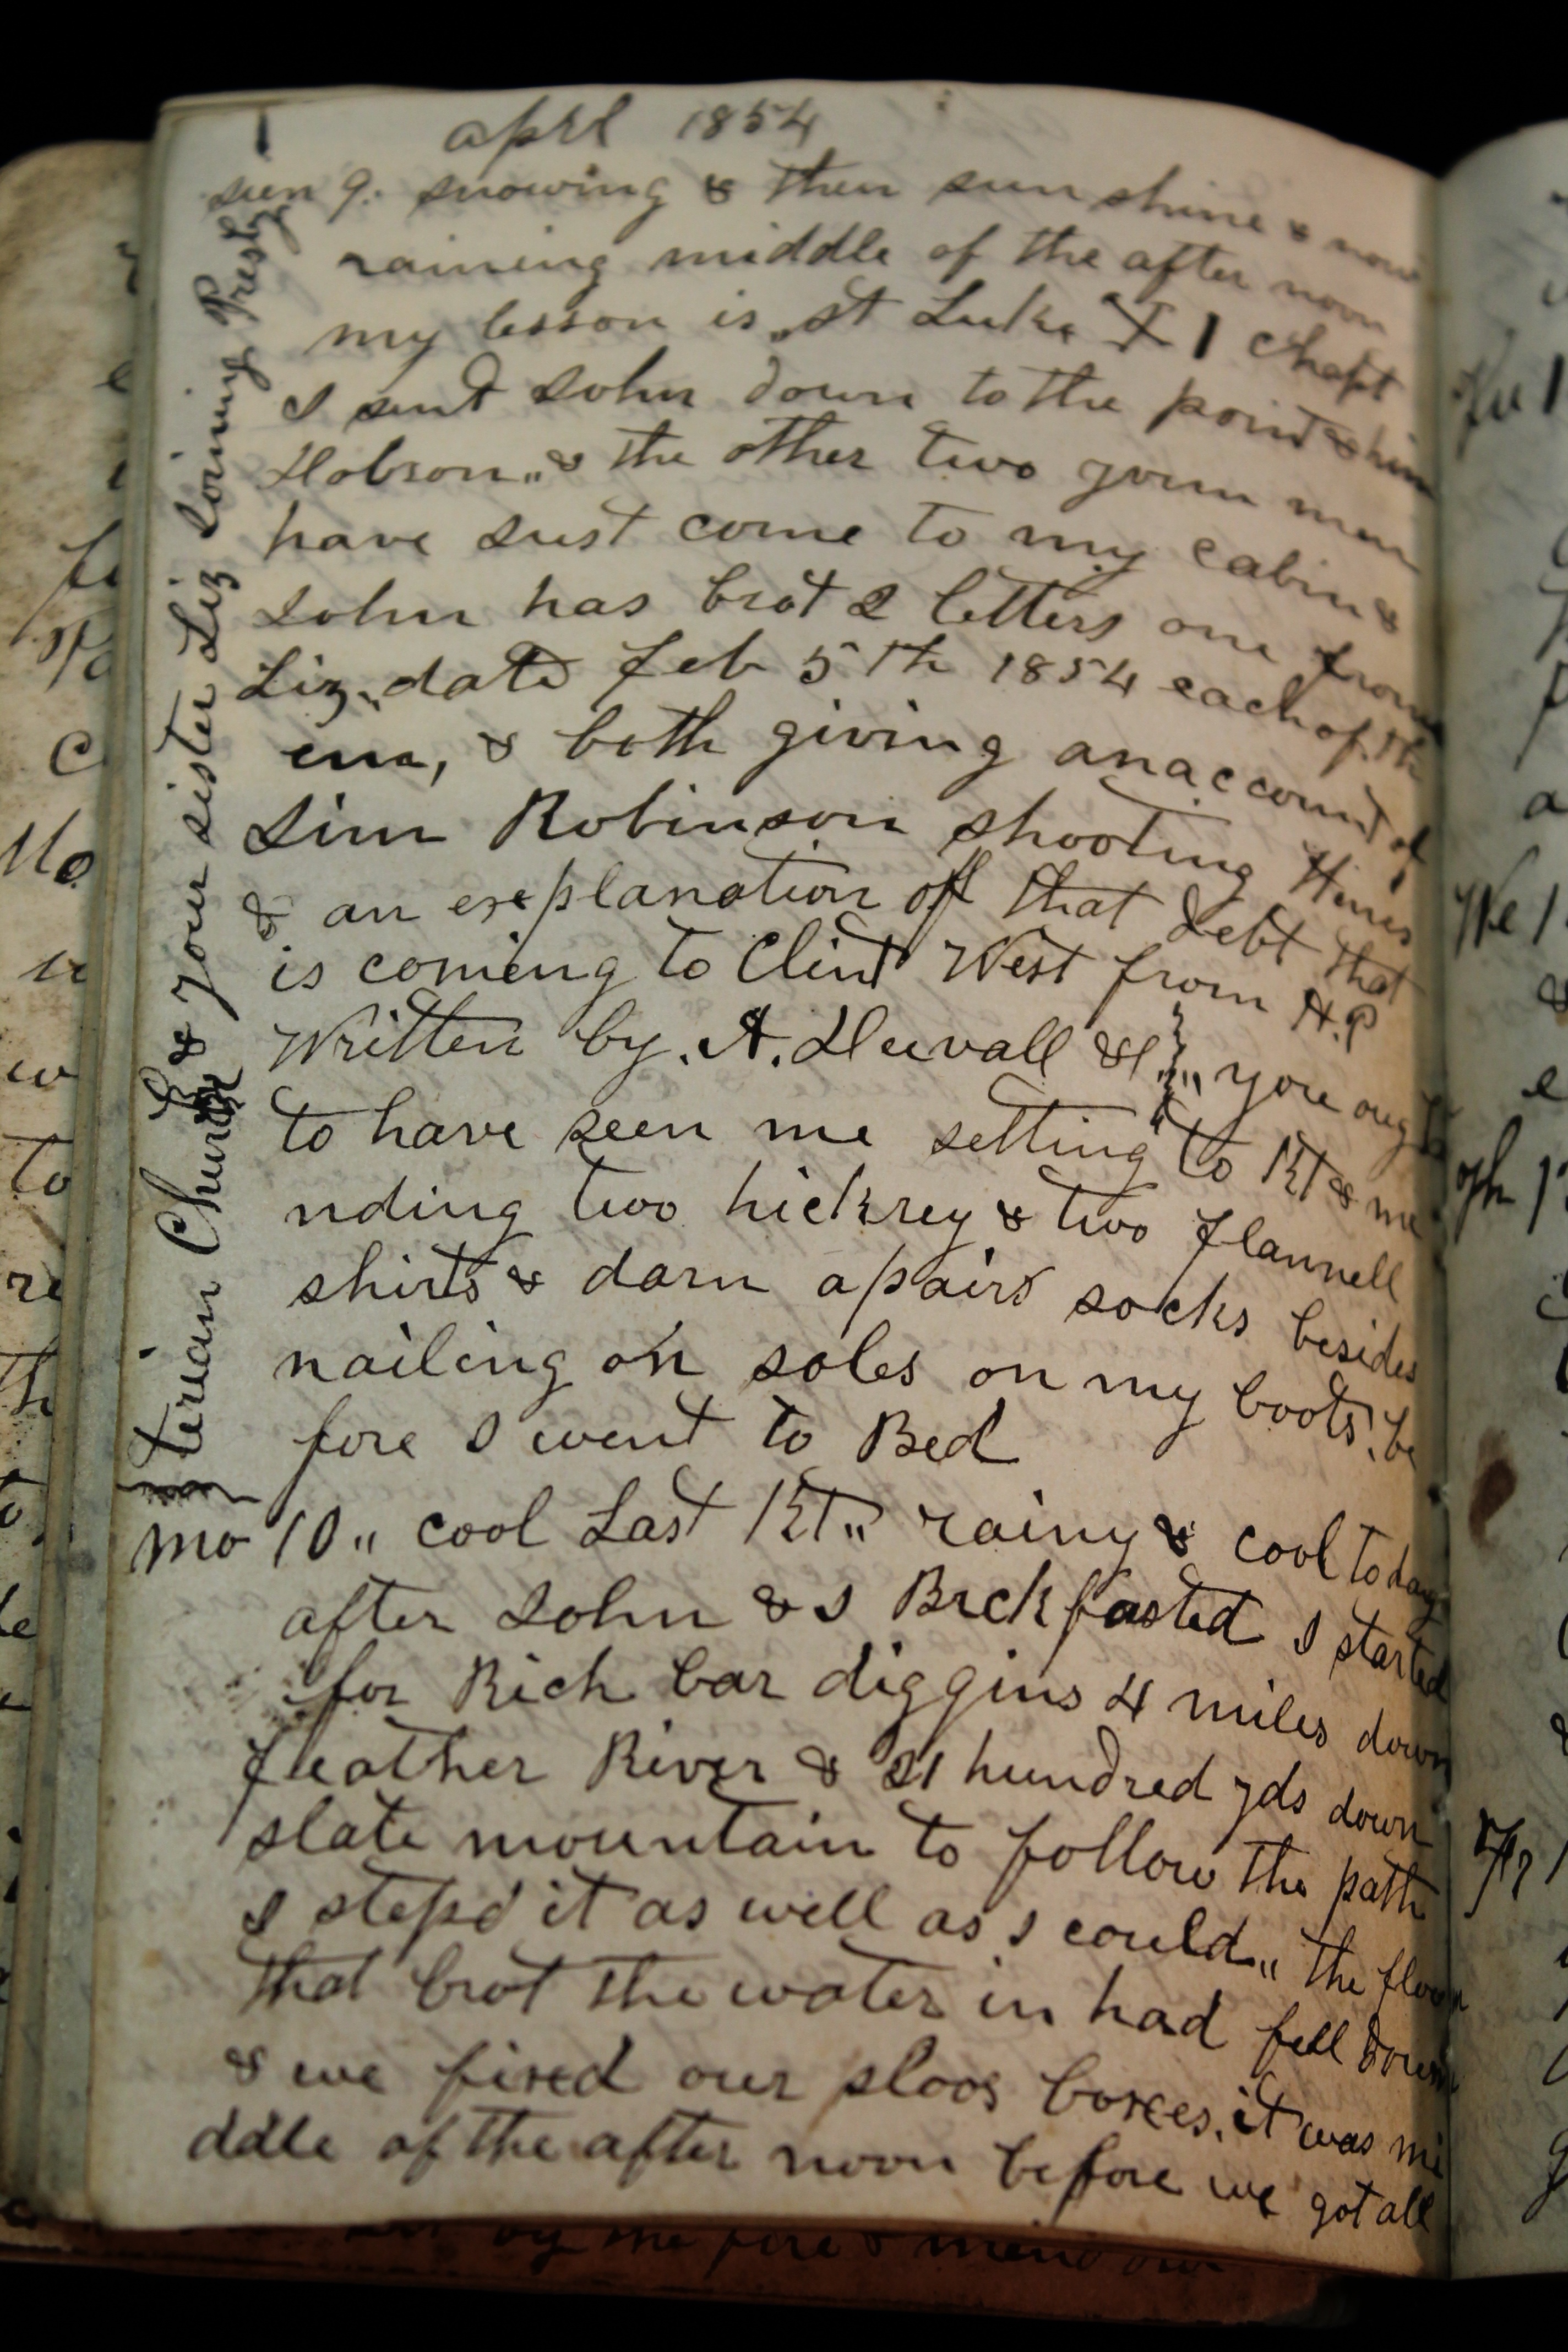 aprl 1854
sun 9. snowing & then sun shine & now
raining middle of the after noon
my lesson is „ st Luke 1 Chapt
I sent John down to the point & him
Hobson „ & the other two youn men
have Just come to my cabin &
John has brot 2 letters one from
Liz „ date feb 5th 1854 each of th
em, & both giving an account of
Jim Robinson shooting Hines
& an explanation off that debt that
is comeing to Clint West from H.P
Written by. A. Huvall &c „ you ought
to have seen me setting to Nt & me
nding two hickrey & two flannell
shirts & darn a pairs socks besides
nailing on soles on my boots, be
fore I went to Bed
mo 10 „ cool Last Nt „ rainy & cool to day
after John & I Brckfasted I started
for Rich bar diggins 4 miles down
feather River & 21 hundred yds down
slate mountain to follow the path
I stepd it as well as I could „ the floom
that brot the water in had fell down
& we fixed our sloos boxes, it was mi
ddle of the after noon before we got all
& your sister Liz Joining Presby
terian Church
by the fire & mend our